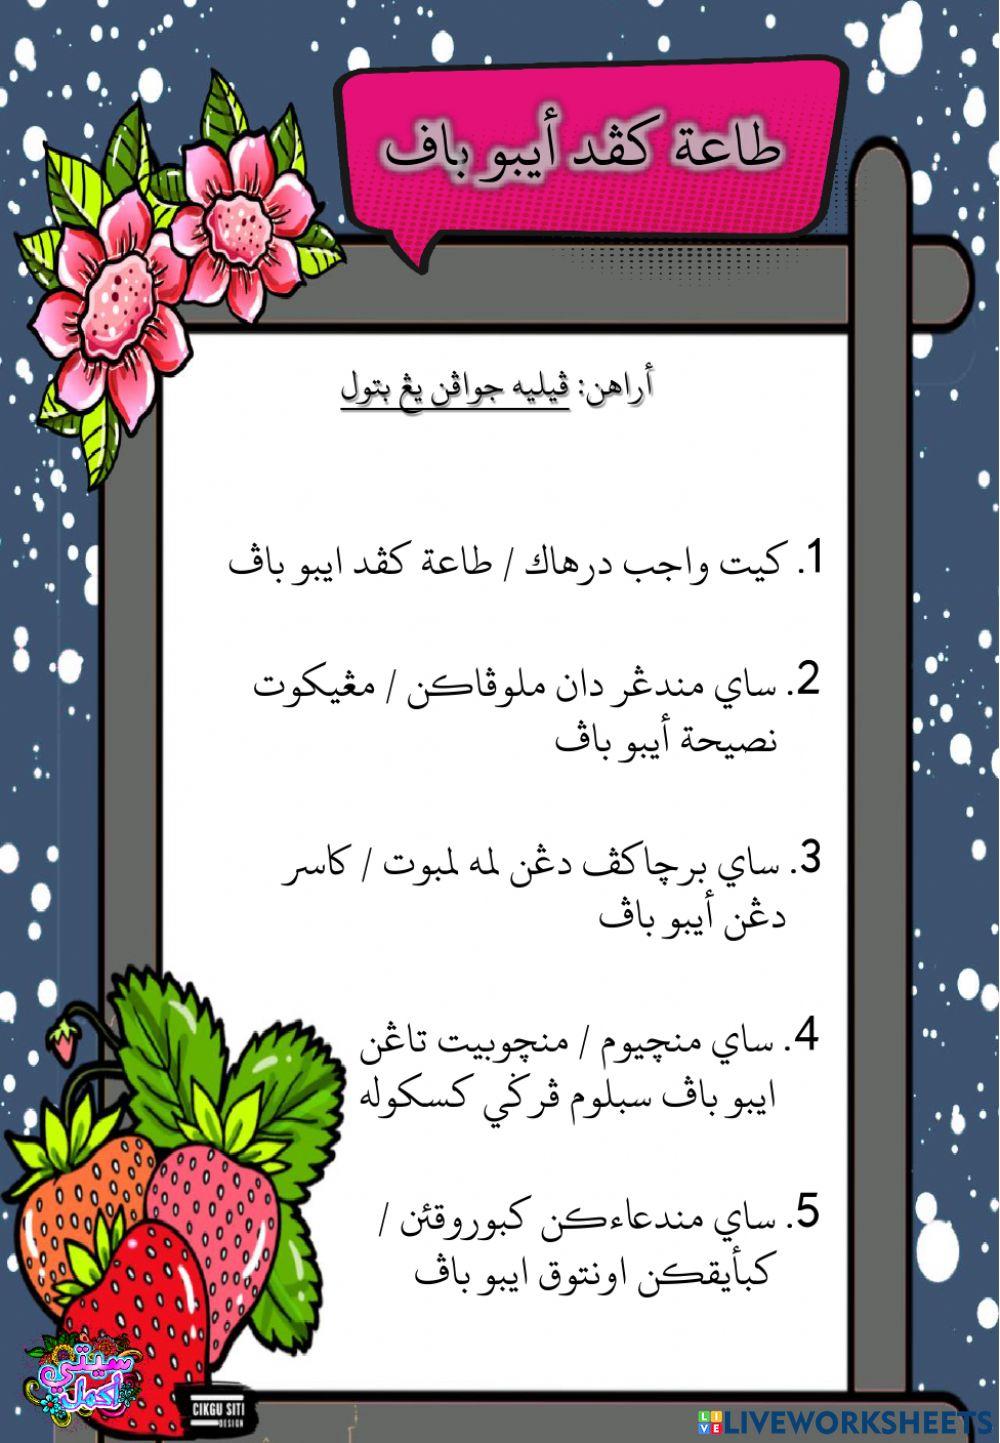 طاعة كڤد أيبو باف
أراهن: ڤيليه جواڤن يڠ بتول
1. كيت واجب درهاك / طاعة كڤد ايبو باڤ
2. ساي مندڠر دان ملوڤاكن / مڠيكوت
نصيحة أيبو باڤ
3. ساي برچاكڤ دڠن لمه لمبوت / كاسر
دڠن أيبو باڤ
4. ساي منچيوم / منچوبيت تاڠن
ايبو باڤ سبلوم ڤرݢي كسكوله
5. ساي مندعاءكن كبوروقئن /
كبأيقكن اونتوق ايبو باڤ
سيتي
اكمل
CIKGU SITI
DESIGN
LIVE LIVEWORKSHEETS